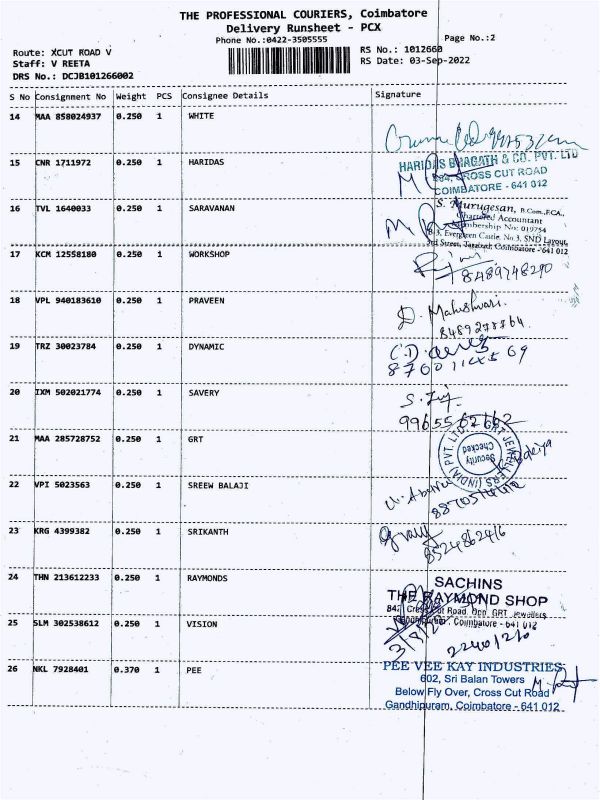 THE PROFESSIONAL COURIERS, Coimbatore
Delivery Runsheet - PCX
Phone No.:0422-3505555
Page No.:2
Route: XCUT ROAD V
RS No.: 1012660
Staff: V REETA
RS Date: 03-Sep-2022
DRS No.: DCJB101266002
S No Consignment No Weight PCS Consignee Details Signature
14 MAA 858024937 0.250 1 WHITE
15 CNR 1711972 0.250 1 HARIDAS
HARIDAS BHAGATH & CO. PVT. LTD
CROSS CUT ROAD
COIMBATORE - 641 012
16 TVL 1640033 0.250 1 SARAVANAN
S. Murugesan, B.Com.,F.C.A.,
Chartered Accountant
Membership No: 019754
Evergreen Castle, No 3, SND Layout,
3rd Street, Tatabad, Coimbatore - 641 012
17 KCM 12558180 0.250 1 WORKSHOP
8489748290
18 VPL 940183610 0.250 1 PRAVEEN
D. Maheshwari.
19 TRZ 30023784 0.250 1 DYNAMIC
20 IXM 502021774 0.250 1 SAVERY
21 MAA 285728752 0.250 1 GRT
GRT JEWELLERS (INDIA) PVT. LTD.
Security
Checked
22 VPI 5023563 0.250 1 SREEW BALAJI
23 KRG 4399382 0.250 1 SRIKANTH
8524862416
24 THN 213612233 0.250 1 RAYMONDS
SACHINS
THE RAYMOND SHOP
842, Cross Cut Road, Opp. GRT Jewellers
Gandhipuram, Coimbatore - 641 012
25 SLM 302538612 0.250 1 VISION
26 NKL 7928401 0.370 1 PEE
PEE VEE KAY INDUSTRIES
602, Sri Balan Towers
Below Fly Over, Cross Cut Road
Gandhipuram, Coimbatore - 641 012